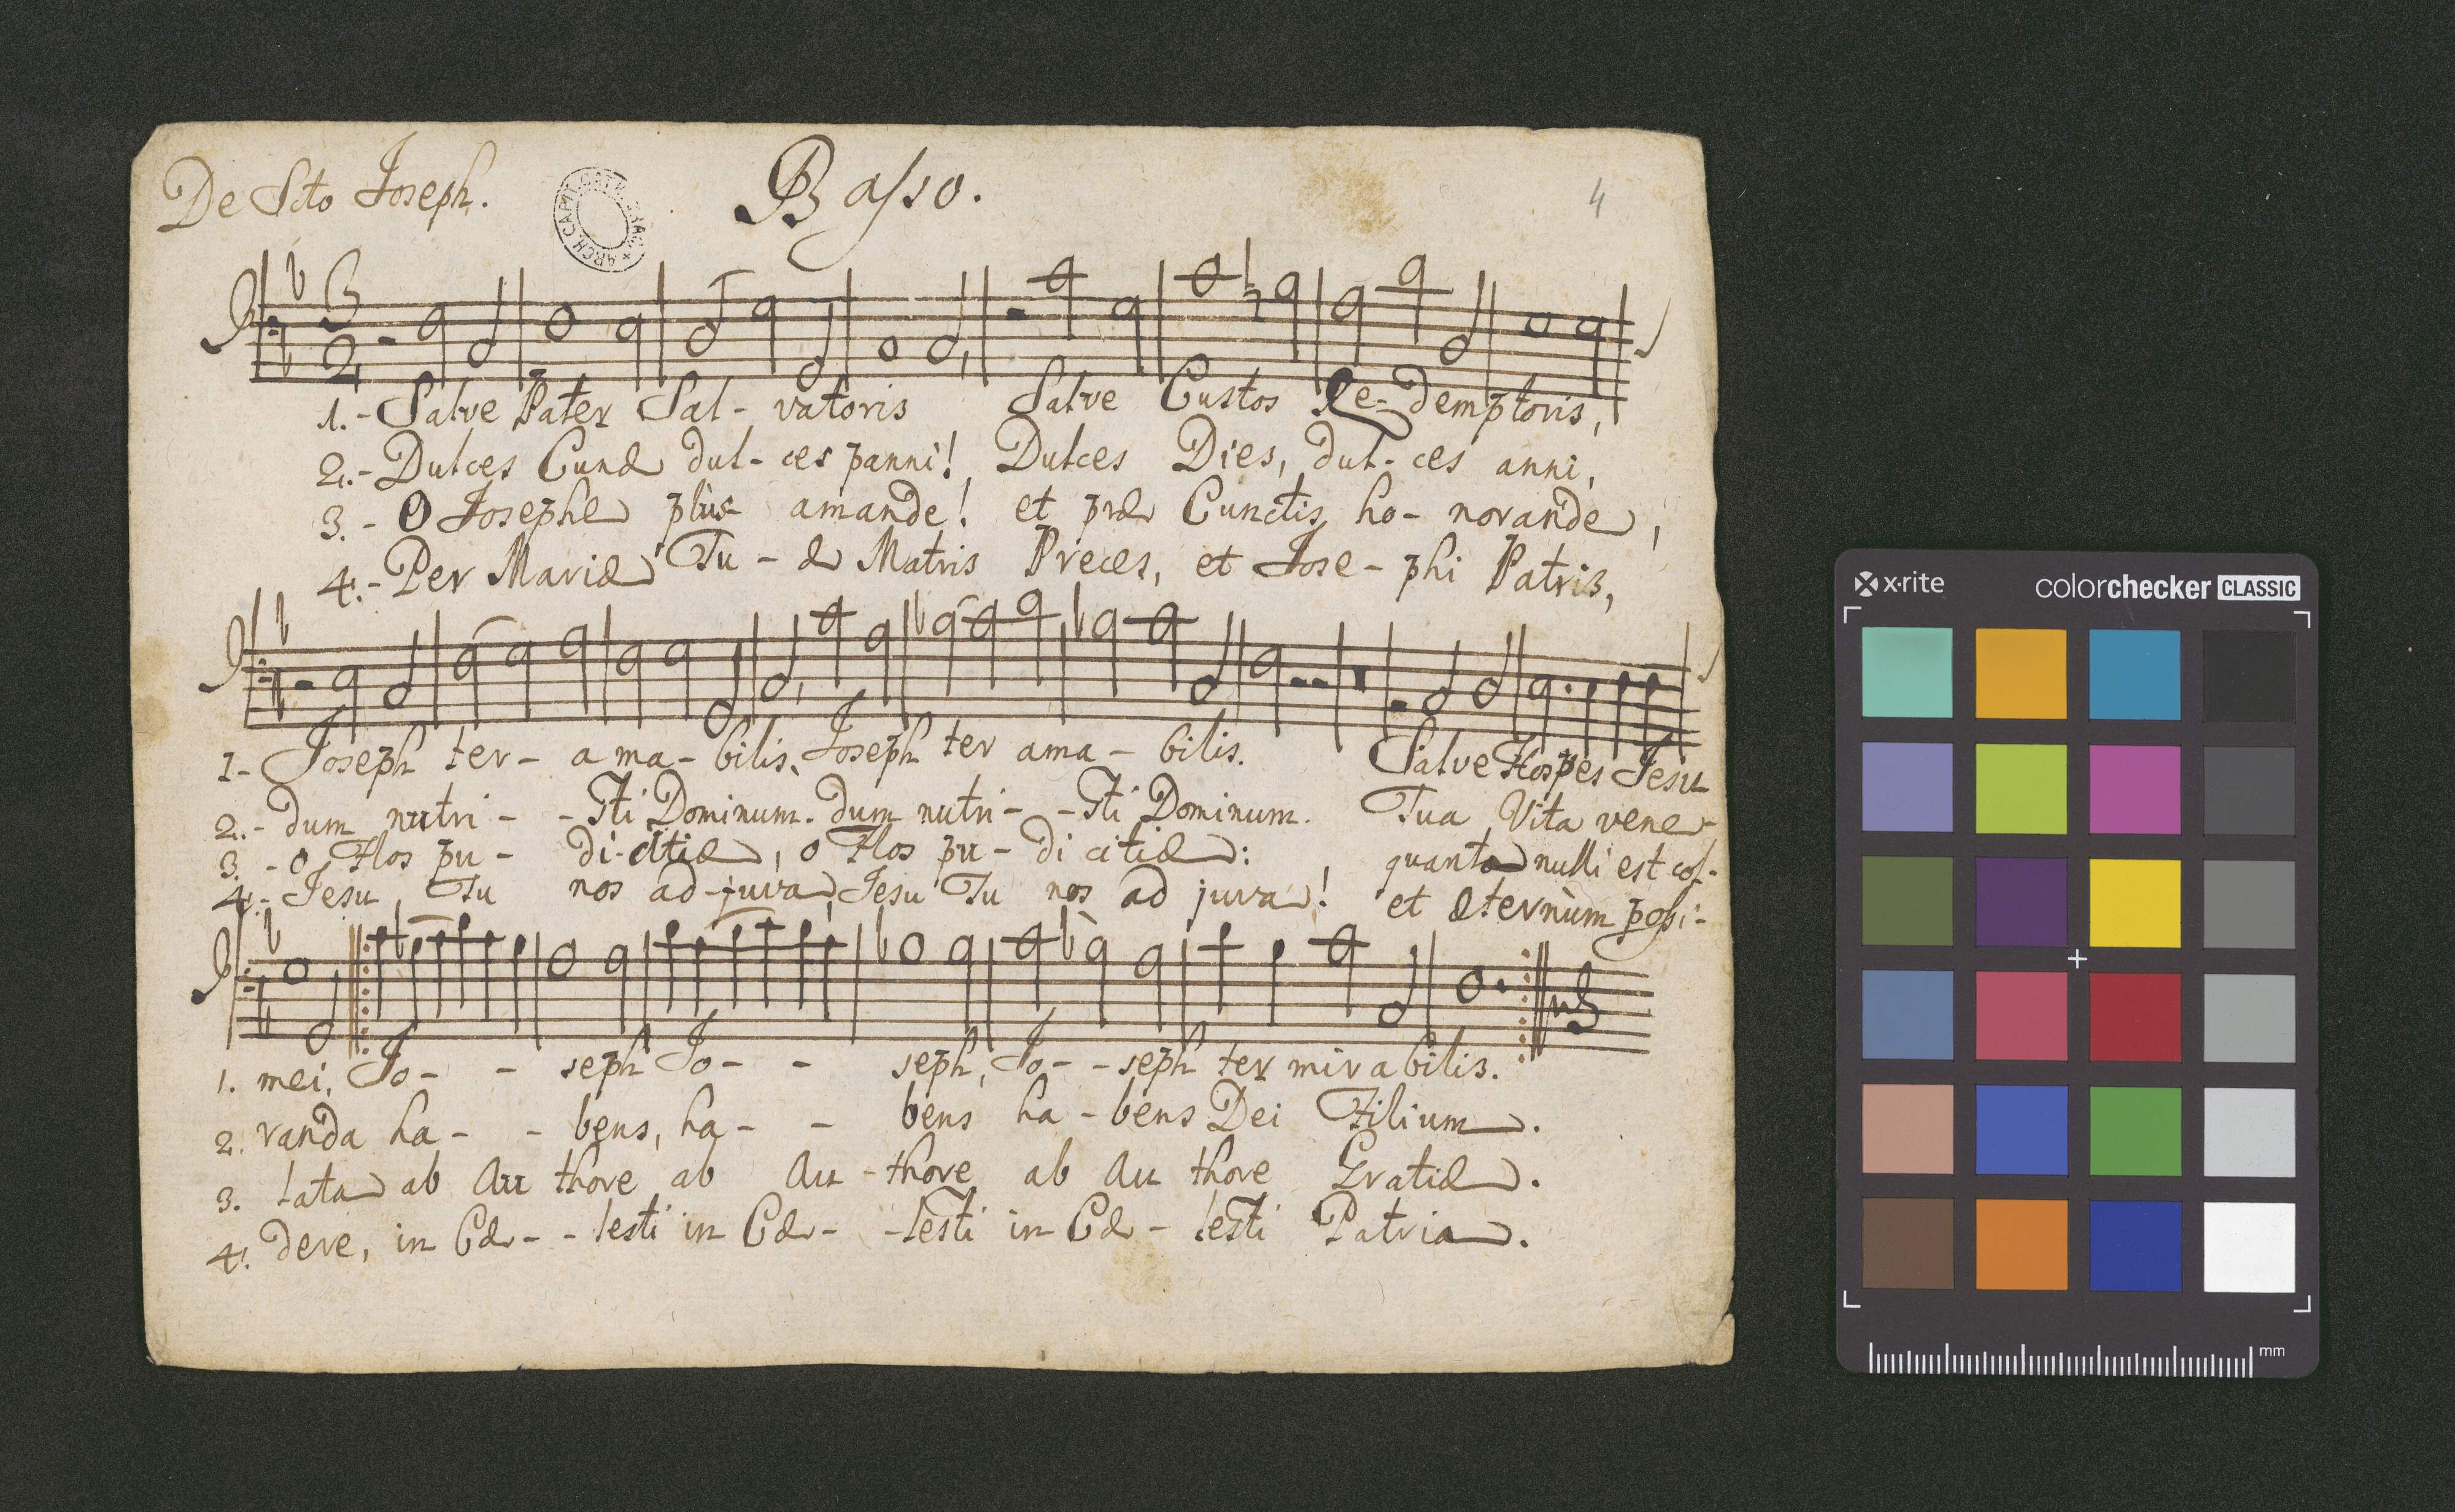 De Scto Joseph.
Basso.
4
ARCH. CAPIT. CATH.
3
2
1.- Salve Pater Sal- vatoris Salve Custos Re- demptoris,
2.- Dulces Cunæ dul- ces panni! Dulces Dies, dul- ces anni,
3.- O Josephe plus amande! et præ Cunctis ho- norande,
4.- Per Mariæ Tu - æ Matris Preces, et Jose- phi Patris,
1- Joseph ter- a ma- bilis, Joseph ter ama- bilis. Salve Hospes Jesu
2.- dum nutri- -sti Dominum. dum nutri- -sti Dominum. Tua Vita vene-
3. - o Flos pu- di-citiæ, o Flos pu- di citiæ: quanta nulli est col-
4.- Jesu Tu nos ad-juva, Jesu Tu nos ad juva! et æternùm possi-
1. mei, Jo- - seph Jo- - seph, Jo- -seph ter mirabilis.
2. randa ha- - bens, ha- - bens ha- bens Dei Filium.
3. lata ab Au thore ab Au -thore ab Au thore Gratiæ.
4. dere, in Cæ- - lesti in Cæ- -lesti in Cæ- lesti Patria.
x-rite
colorchecker CLASSIC
mm